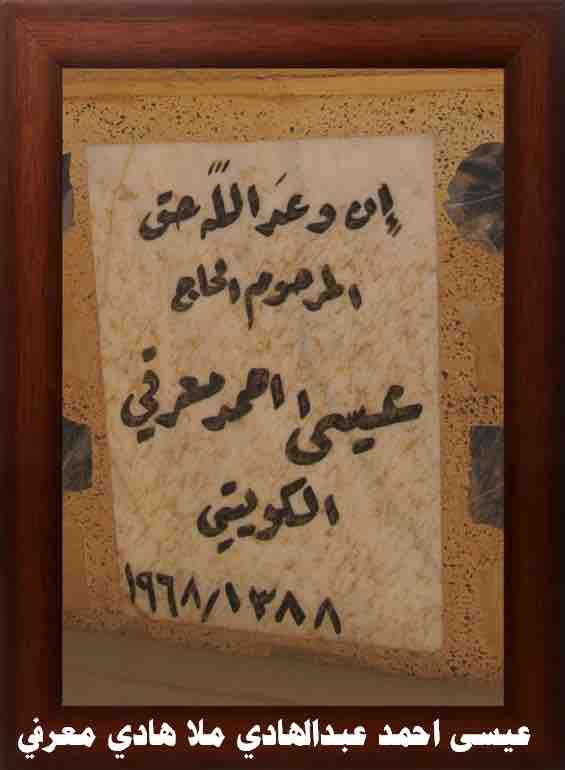 إن وعد الله حق
المرحوم الحاج
عيسى احمد معرفي
الكويتي
١٣٨٨/١٩٦٨
عيسى احمد عبدالهادي ملا هادي معرفي